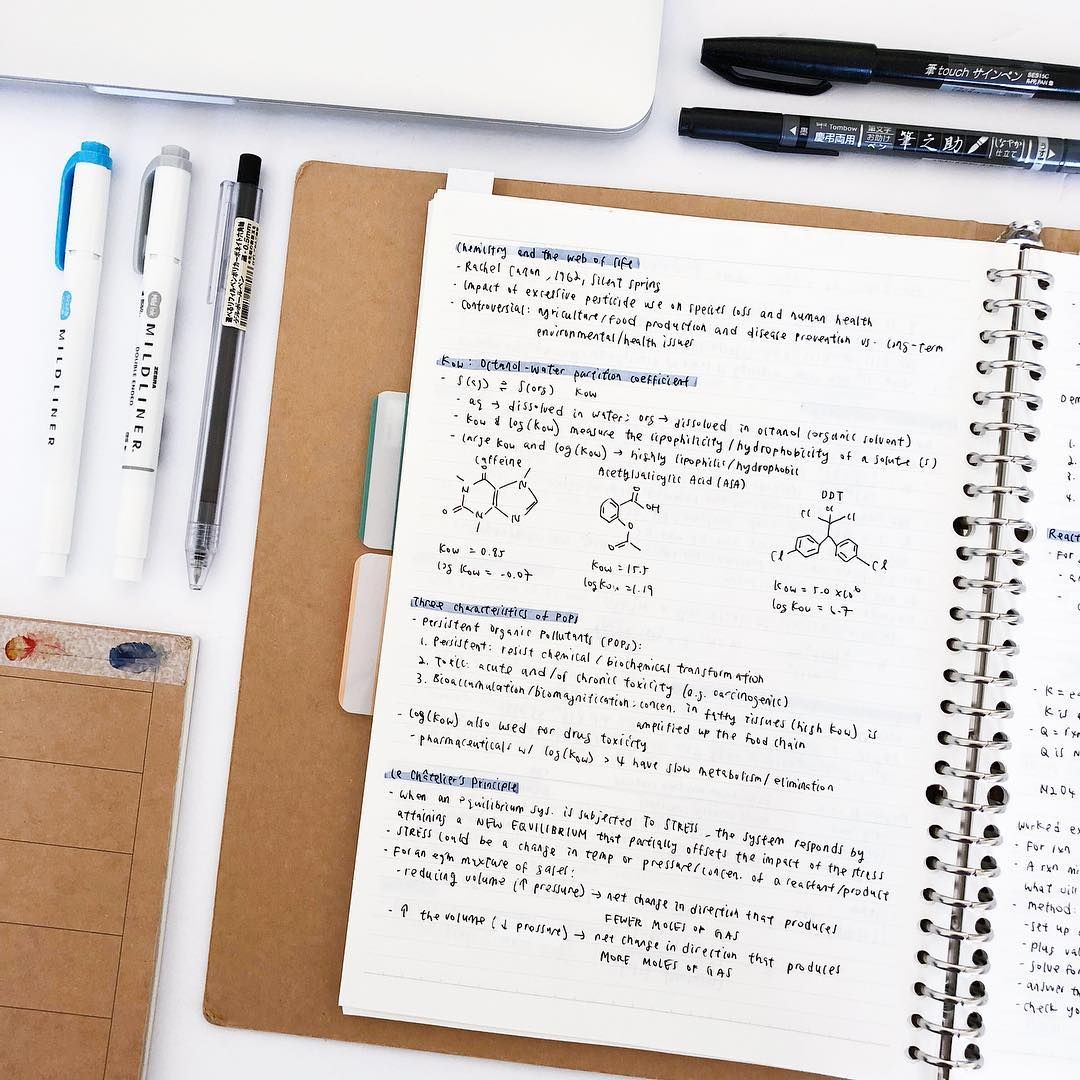 Chemistry and the web of life
- Rachel Carson, 1962, Silent Spring
- Impact of excessive pesticide use on species loss and human health
- Controversial: agriculture/food production and disease prevention vs. long-term
environmental/health issues
Kow: Octanol-water partition coefficient
- S(aq) ⇌ S(org) Kow
- aq → dissolved in water; org → dissolved in octanol (organic solvent)
- Kow & log(Kow) measure the lipophilicity/hydrophobicity of a solute (s)
- Large Kow and log(Kow) → highly lipophilic/hydrophobic
Caffeine
Acetylsalicylic Acid (ASA)
DDT
O
N
N
O
N
N
O
OH
O
O
Cl
Cl
Cl
Cl
Cl
Kow = 0.85
log Kow = -0.07
Kow = 15.5
log Kow = 1.19
Kow = 5.0 x10⁶
log Kow = 6.7
Three characteristics of POPs
- Persistent Organic Pollutants (POPs):
1. Persistent: resist chemical/biochemical transformation
2. Toxic: acute and/or chronic toxicity (e.g. carcinogenic)
3. Bioaccumulation/biomagnification: concen. in fatty tissues (high Kow) is
amplified up the food chain
- log(Kow) also used for drug toxicity
- pharmaceuticals w/ log(Kow) > 4 have slow metabolism/elimination
Le Châtelier's Principle
- when an equilibrium sys. is subjected TO STRESS, the system responds by
attaining a NEW EQUILIBRIUM that partially offsets the impact of the stress
- STRESS could be a change in temp or pressure/concen. of a reactant/product
- For an eqm mixture of gases:
- reducing volume (↑ pressure) → net change in direction that produces
FEWER MOLES OF GAS
- ↑ the volume (↓ pressure) → net change in direction that produces
MORE MOLES OF GAS
Dem
1.
2.
3.
4.
React
- For
- K = e
K is
- Q = rxn
Q is N
N2O4
Worked ex
- For rxn
- A rxn mi
what will
- method:
- set up
- plus va
- solve fo
- answer th
- check yo
MILDLINER
ZEBRA
MILDLINER.
DOUBLE ENDED
選べるリフィルペンポリカーボネイト六角軸
ゲルボールペン
黒・0.5mm
筆touch サインペン
SES15C
Tombow
慶弔両用
墨
筆文字
お助け
ペン
筆之助
しなやか
仕立て